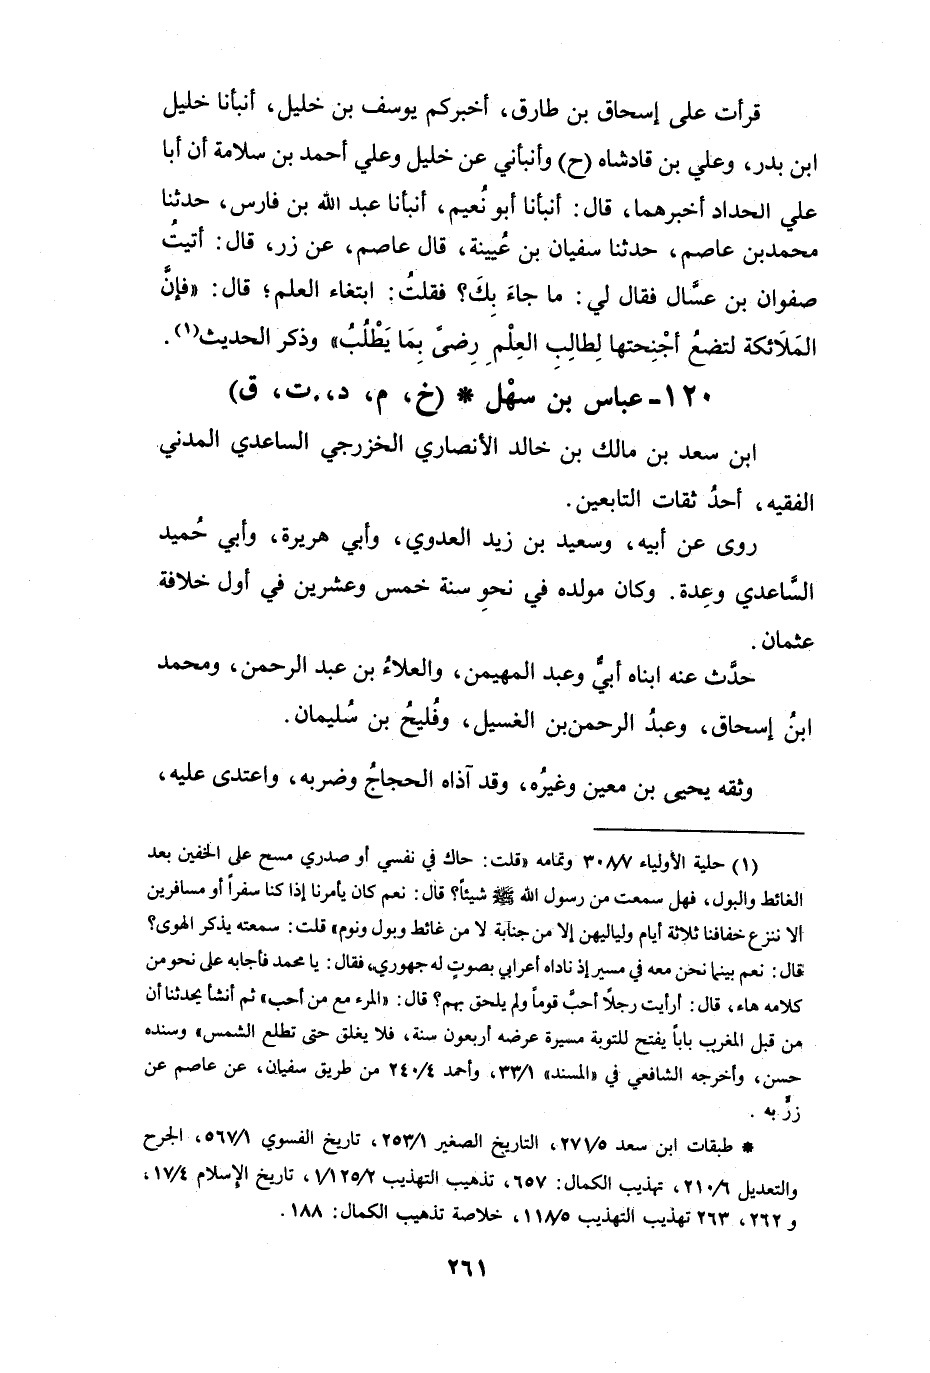 قرأت على إسحاق بن طارق، أخبركم يوسف بن خليل، أنبأنا خليل
ابن بدر، وعلي بن قادشاه (ح) وأنبأني عن خليل وعلي أحمد بن سلامة أن أبا
علي الحداد أخبرهما، قال: أنبأنا أبو نُعيم، أنبأنا عبد الله بن فارس، حدثنا
محمدبن عاصم، حدثنا سفيان بن عُيينة، قال عاصم، عن زر، قال: أتيتُ
صفوان بن عسَّال فقال لي: ما جاءَ بِكَ؟ فقلتُ: ابتغاء العلم؛ قال: «فإنَّ
المَلَائكة لتضعُ أجْنِحتها لِطالِبِ العِلْمِ رِضىً بِمَا يَطْلُبُ» وذكر الحديث(١).
١٢٠- عباس بن سهْل * (خ، م، د،، ت، ق)
ابن سعد بن مالك بن خالد الأنصاري الخزرجي الساعدي المدني
الفقيه، أحدُ ثقات التابعين.
روى عن أبيه، وسعيد بن زيد العدوي، وأبي هريرة، وأبي حُميد
السَّاعدي وعِدة. وكان مولده في نحوِ سنة خمس وعشرين في أول خلافة
عثمان.
حدَّث عنه ابناه أبيٌّ وعبد المهيمن، والعلاءُ بن عبد الرحمن، ومحمد
ابنُ إسحاق، وعبدُ الرحمن‌بن الغسيل، وفُليحُ بن سُليمان.
وثقه يحيى بن معين وغيرُه، وقد آذاه الحجاجُ وضربه، واعتدى عليه،
(١) حلية الأولياء ٣٠٨/٧ وتمامه «قلت: حاك في نفسي أو صدري مسح على الخفين بعد
الغائط والبول، فهل سمعت من رسول الله ﷺ شيئاً؟ قال: نعم كان يأمرنا إذا كنا سفراً أو مسافرين
ألا ننزع خفافنا ثلاثة أيام ولياليهن إلا من جنابة لا من غائط وبول ونوم» قلت: سمعته يذكر الهوى؟
قال: نعم بينما نحن معه في مسير إذ ناداه أعرابي بصوتٍ له جهوري، فقال: يا محمد فأجابه على نحو من
كلامه هاء، قال: أرأيت رجلًا أحبَّ قوماً ولم يلحق بهم؟ قال: «المرء مع من أحب» ثم أنشأ يحدثنا أن
من قبل المغرب باباً يفتح للتوبة مسيرة عرضه أربعون سنة، فلا يغلق حتى تطلع الشمس» وسنده
حسن، وأخرجه الشافعي في «المسند» ٣٣/١، وأحمد ٢٤٠/٤ من طريق سفيان، عن عاصم عن
زرٍّ به.
* طبقات ابن سعد ٢٧١/٥، التاريخ الصغير ٢٥٣/١، تاريخ الفسوي ٥٦٧/١، الجرح
والتعديل ٢١٠/٦، تهذيب الكمال: ٦٥٧، تذهيب التهذيب ١/١٢٥/٢، تاريخ الإسلام ١٧/٤،
و ٢٦٢، ٢٦٣ تهذيب التهذيب ١١٨/٥، خلاصة تذهيب الكمال: ١٨٨.
٢٦١